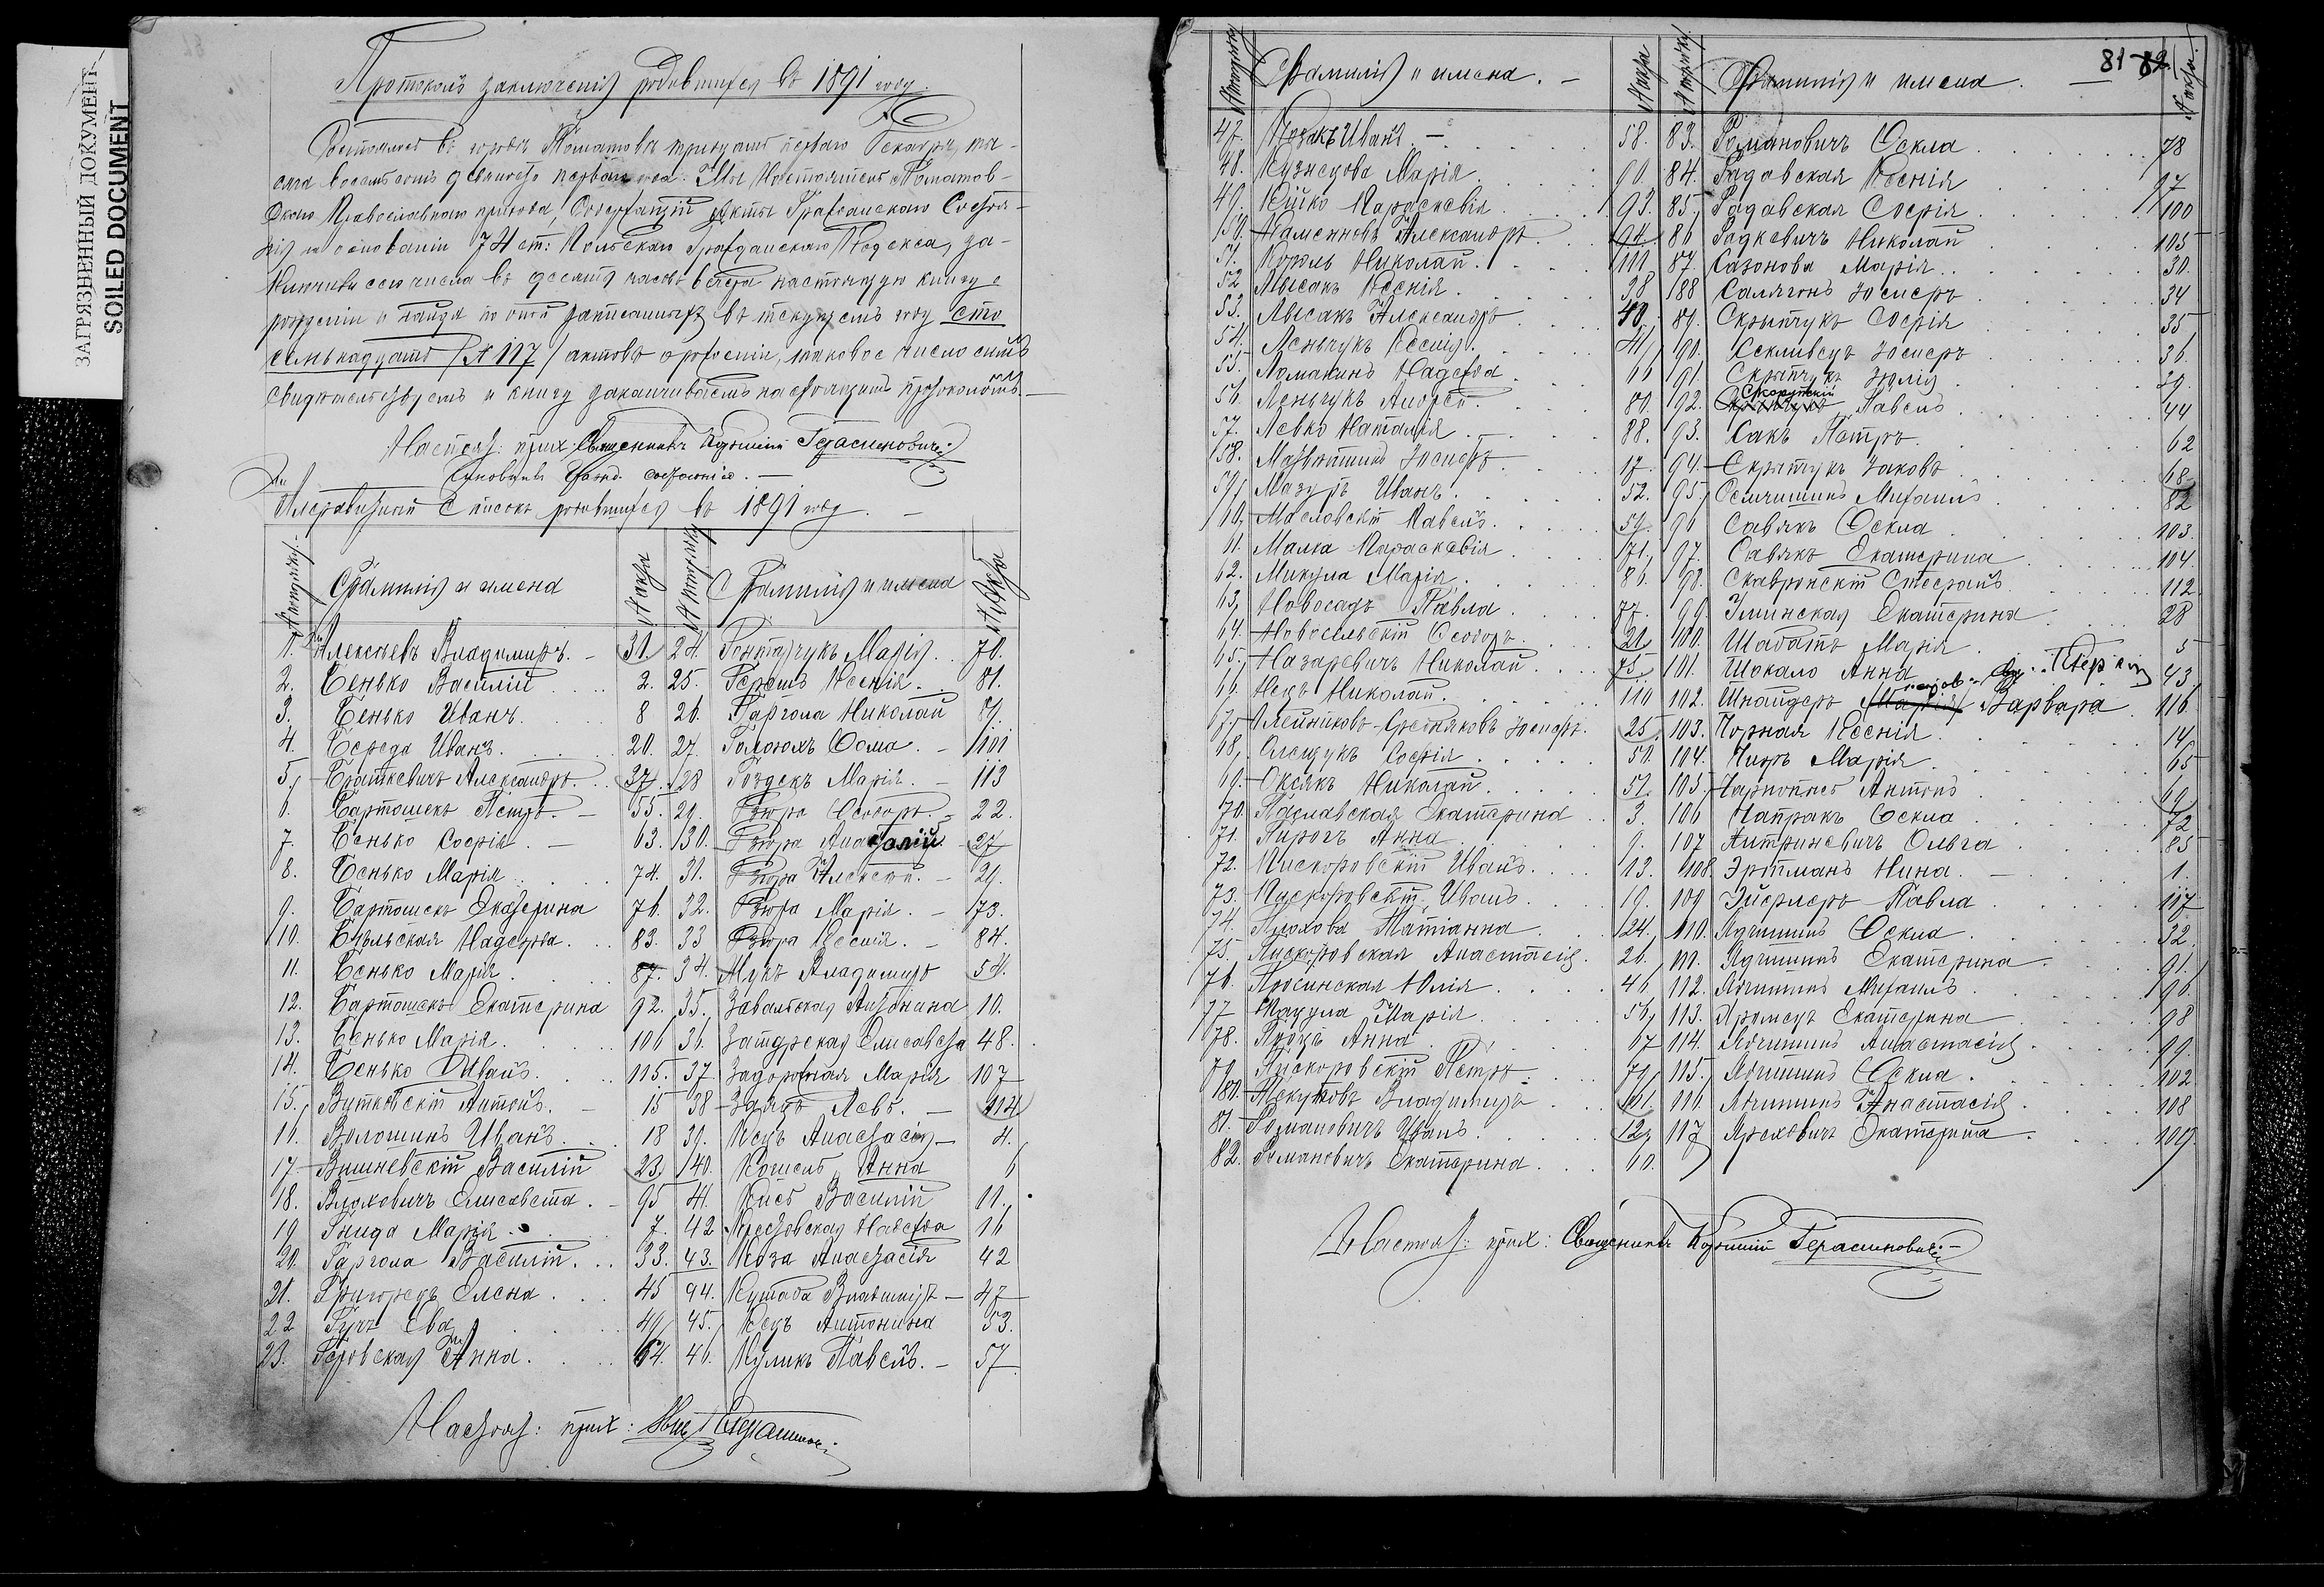 ЗАГРЯЗНЕННЫЙ ДОКУМЕНТ
SOILED DOCUMENT
Протоколъ заключенія родившихся въ 1891 году.
Состоялся въ городѣ Томашовѣ тридцать перваго Декабря, ты-
сяча восемьсотъ девяносто перваго года. Мы Настоятель Томашов-
скаго Православнаго прихода, Содержащій акты Гражданскаго Состоя-
нія на основаніи 74 ст: Польскаго Гражданскаго Кодекса, за-
ключивъ сего числа въ десять часовъ вечера настоящую книгу о
рожденіи и найдя по оной записанныхъ въ текущемъ году сто
семьнадцать /№ 117/ актовъ о рожденіи, таковое число симъ
свидѣтельствуемъ и книгу заканчиваемъ настоящимъ протоколомъ.
Настоят: прих: Священникъ Герасимовичъ
Чиновникъ гражд. состоянія.
Алфавитный списокъ родившихся въ 1891 году.
Фамилія и имена № акта Фамилія и имена № акта
1. Алексѣевъ Владиміръ. 31. 24. Гонтарчукъ Марія. 70.
2. Бенько Василій 2. 25. Герешъ Ксенія. 81.
3. Бенько Иванъ. 8 26. Гаргола Николай 89.
4. Береда Иванъ. 20. 27. Голоюхъ Ѳома. 101
5. Браткевичъ Александръ. 37. 28 Гоздекъ Марія. 113
6. Бартошекъ Петръ. 55. 29. Дзюра Ѳеодоръ. 22.
7. Бенько Софія. 63. 30. Дзюра Анатолій 27
8. Бенько Марія 74. 31. Дзюра Алексѣй. 29.
9. Бартошекъ Екатерина 76. 32. Дзюра Марія. 73.
10. Бѣльская Надежда. 83. 33 Дзюра Ксенія. 84.
11. Бенько Марія. 87. 34. Жукъ Владиміръ 54.
12. Бартошекъ Екатерина 92. 35. Завальская Антонина 10.
13. Бенько Марія. 106 36. Затурская Елисавета 48.
14. Бенько Иванъ. 115. 37. Задорожная Марія 107
15. Витковскій Антонъ. 15 38 Здядъ Левъ. 114
16. Волошинъ Иванъ. 18 39. Коцъ Анастасія 4.
17 Вишневскій Василій 23. 40. Кошель Анна 6
18. Влаховичъ Елисавета. 95 41. Кисъ Василій 11.
19 Гнида Марія. 7. 42 Крессовская Надежда 16
20. Гаргола Василій. 33. 43. Коза Анастасія 42
21. Григорецъ Елена. 45 44. Кушаба Владиміръ 47
22 Гучъ Ева 49 45. Коцъ Антонина 53.
23. Геровская Анна. 64. 46. Куликъ Павелъ. 57
Настоят: прих:
81
Фамилія и имена. № акта Фамилія и имена.
47. Козакъ Иванъ 58. 83. Романовичъ Ѳекла 78
48. Кузнецова Марія 90. 84. Радавская Ксенія 97
49. Кійко Параскевія 93. 85. Радавская Софія 100
50. Каменновъ Александръ 94. 86 Радкевичъ Николай 105
51. Король Николай. 111 87. Сазонова Марія 30.
52 Лысакъ Ксенія. 38 88 Салягонъ Іосифъ 34
53. Лысакъ Александръ 40. 89. Скрыпчукъ Софія 35
54. Леньчукъ Ксенія. 41. 90. Секливецъ Іосифъ 36.
55. Ломакинъ Надежда 66 91. Скрыпчукъ Юлія 39.
56. Леньчукъ Андрей. 80. 92. Скорупскій Павелъ 44
57. Левко Наталія 88. 93. Сакъ Петръ. 62
58. Матвѣишинъ Іосифъ 17. 94. Скрыпчукъ Іаковъ 68
59. Мазуръ Иванъ. 52. 95. Осмчишинъ Михаилъ 82
60. Масловскій Павелъ. 59. 96 Савякъ Ѳекла 103.
61. Малка Параскевія 71. 97. Савякъ Екатерина 104.
62. Микула Марія. 86. 98. Скавронскій Стефанъ 112.
63. Новосадъ Павла 77. 99. Улинская Екатерина 28
64. Новосельскій Ѳеодоръ 21. 100. Шабатъ Марія 5
65. Назаревичъ Николай 75. 101. Шокало Анна 43
66. Нецъ Николай. 110 102. Шнайдеръ Варвара 116
67. Олейниковъ-Средняковъ Іосифъ. 25. 103. Чорная Ксенія 14
68. Олещукъ Софія 50. 104. Чиръ Марія 65
69. Оксякъ Николай 51. 105. Чарнопысь Антонъ 69
70. Паславская Екатерина 3. 106 Чапракъ Ѳекла 72
71. Пирогъ Анна 9. 107 Антриневичъ Ольга 85
72. Пискоровскій Иванъ. 13. 108. Эртманъ Нина. 1.
73. Пискоровскій Иванъ. 19. 109 Эйсфлеръ Павла 117
74. Плохова Татіанна 24. 110. Ядчишинъ Ѳекла 32.
75. Пискоровская Анастасія. 26. 111. Ядчишинъ Екатерина 91.
76. Просинская Юлія 46 112. Ядчишинъ Михаилъ 96
77 Пацула Марія 56. 113. Яромецъ Екатерина 98
78. Процъ Анна 67 114. Ядчишинъ Анастасія 99.
79. Пискоровскій Петръ. 79. 115. Ядчишинъ Ѳекла 102
80. Пекутовъ Владиміръ 61. 116. Ядчишинъ Анастасія 108
81. Романовичъ Иванъ. 12. 117 Яреховичъ Екатерина 109
82. Романовичъ Екатерина 60.
Настоят: прих: Священникъ Герасимовичъ